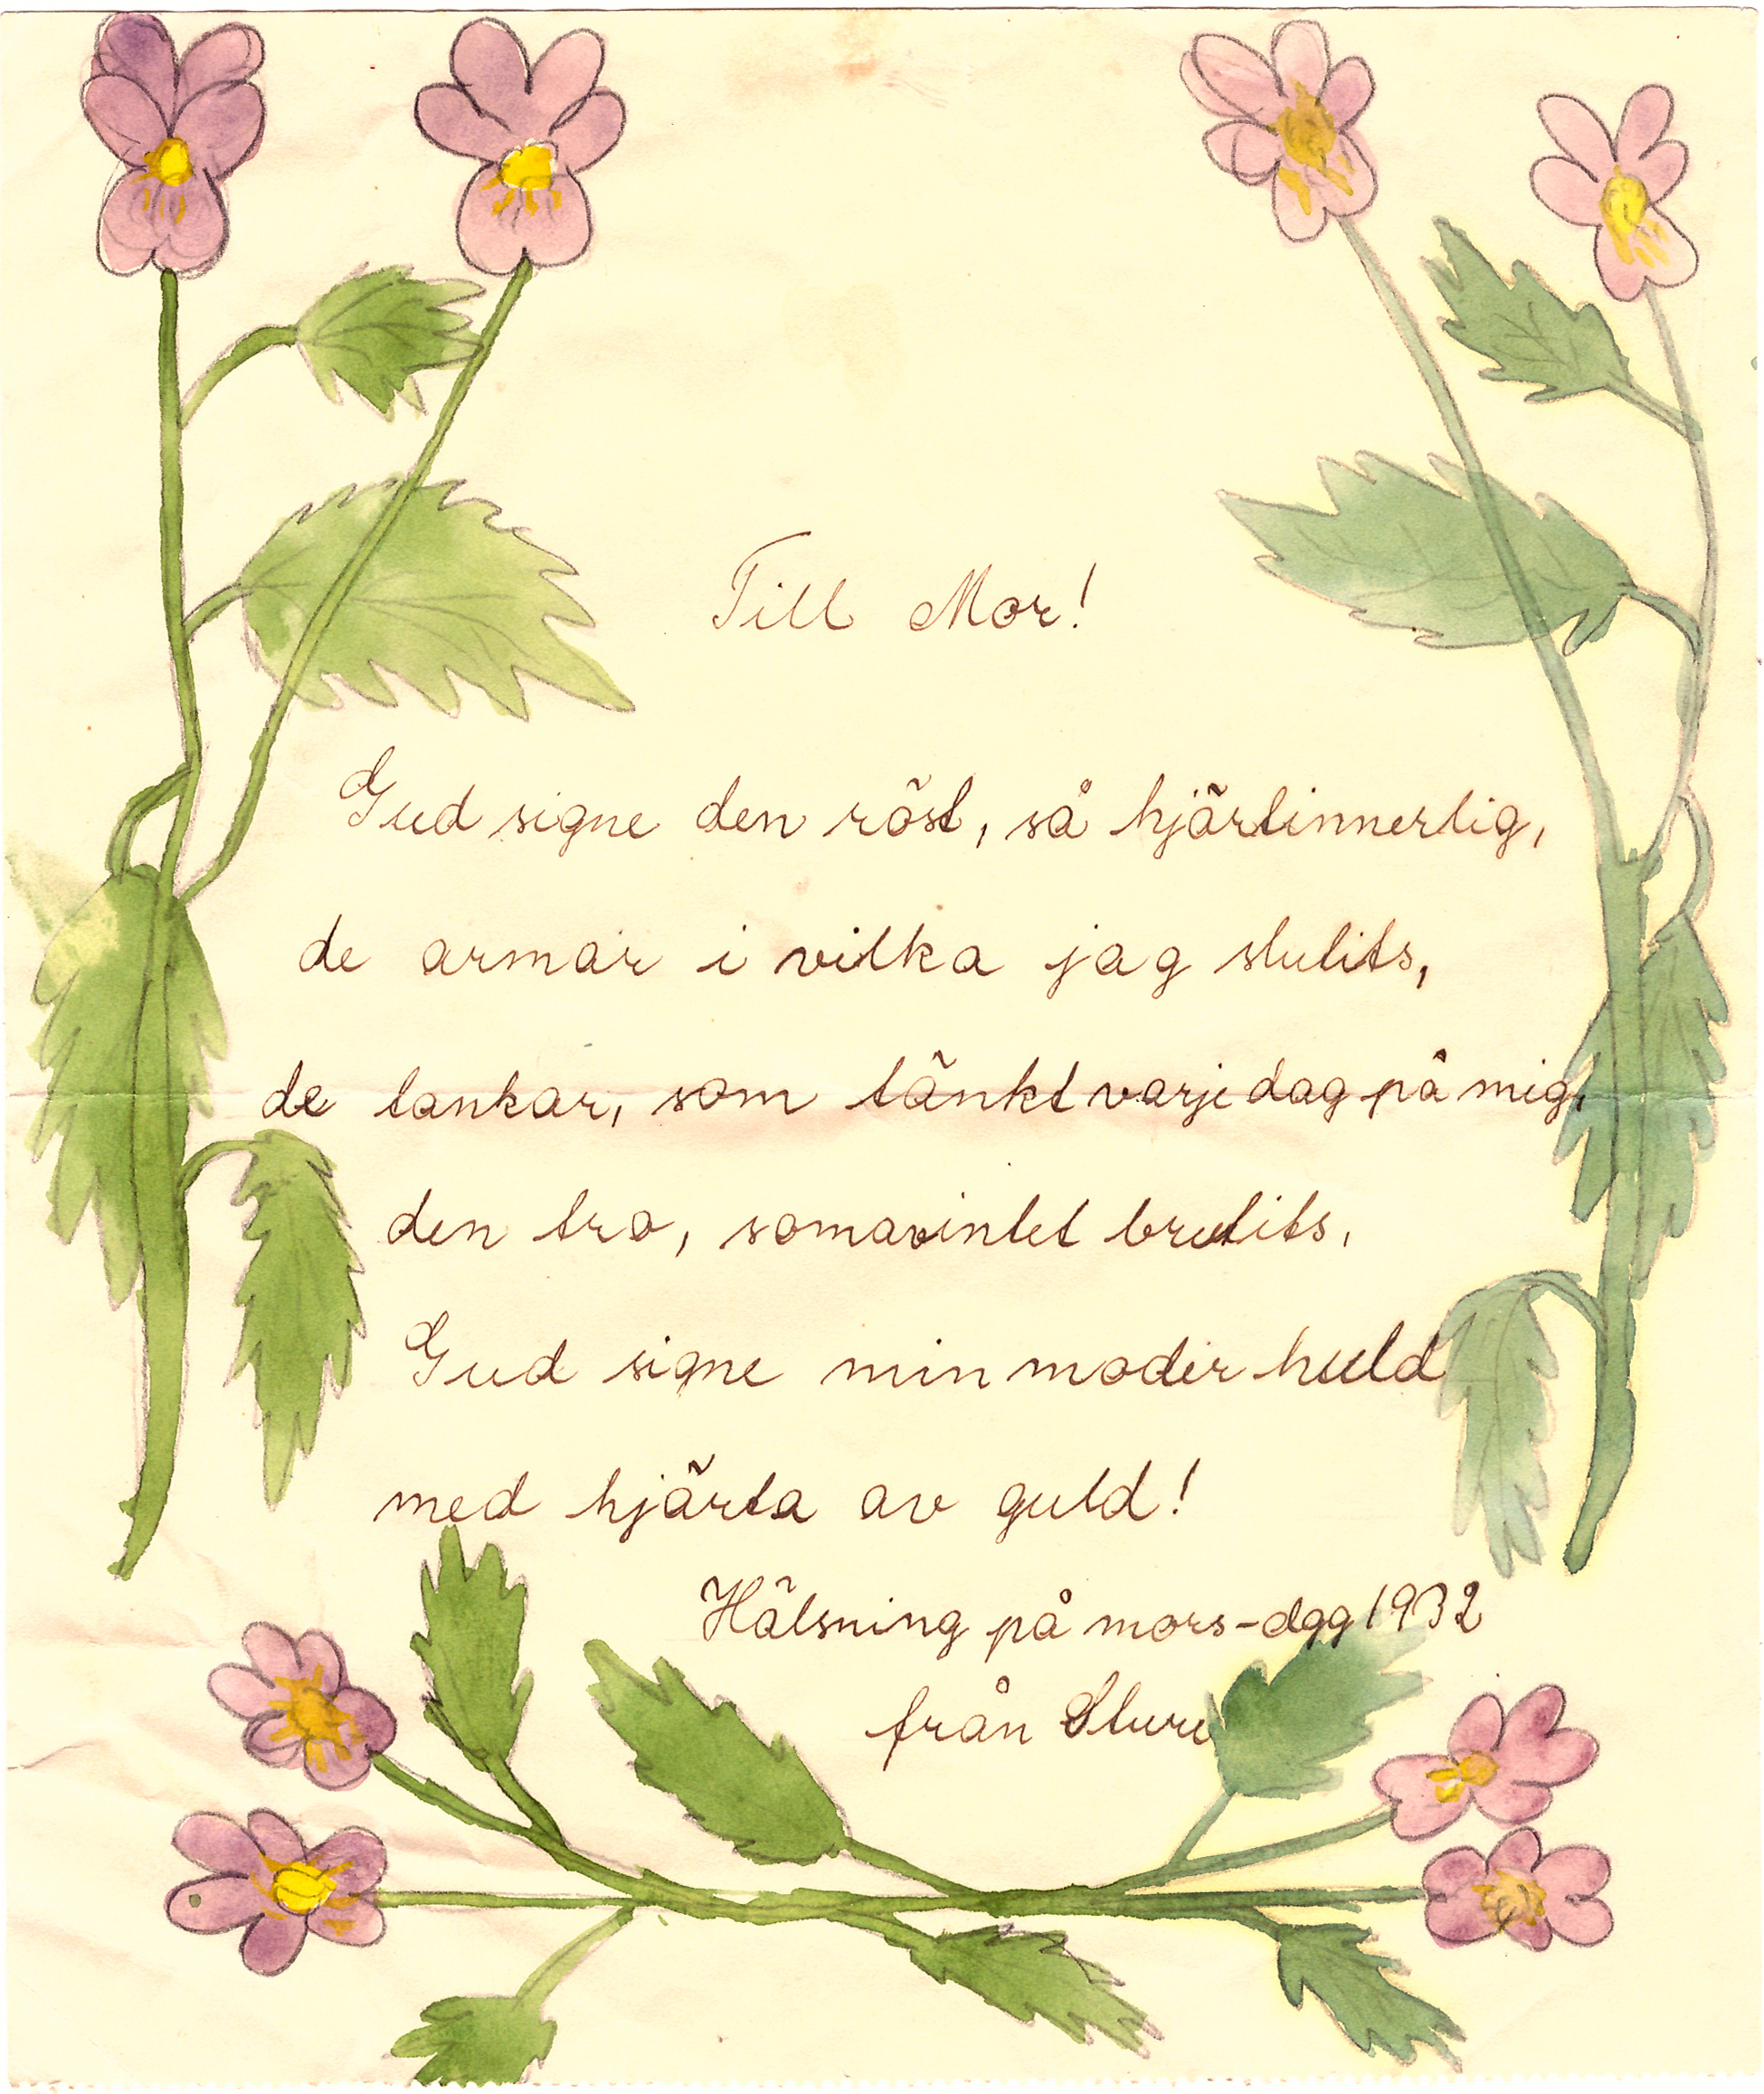 Till Mor!
Gud signe den röst, så hjärtinnerlig,
de armar i vilka jag slutits,
de tankar, som tänkt varje dag på mig,
den tro, som av intet brutits,
Gud signe min moder huld
med hjärta av guld!
Hälsning på mors-dag 1932
från Sture